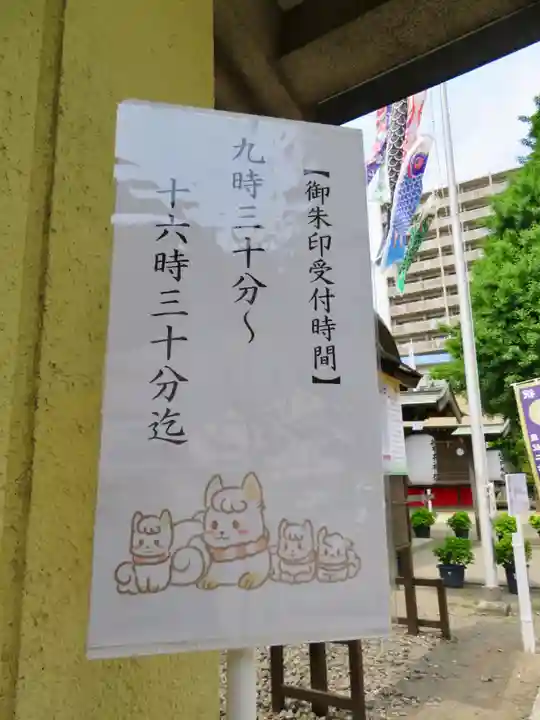 【御朱印受付時間】
九時三十分〜
十六時三十分迄
祝